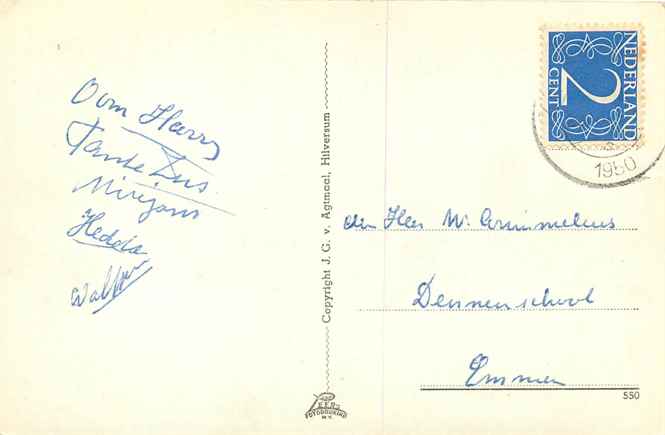 Oom Harry
Tante Zus
Mirjam
Hedda
Walter
Copyright J. G. v. Agtmaal, Hilversum
EERS
FOTODRUKIND
N.V.
NEDERLAND
2
CENT
1950
den Heer W.
Dennenschool
Emmen
550